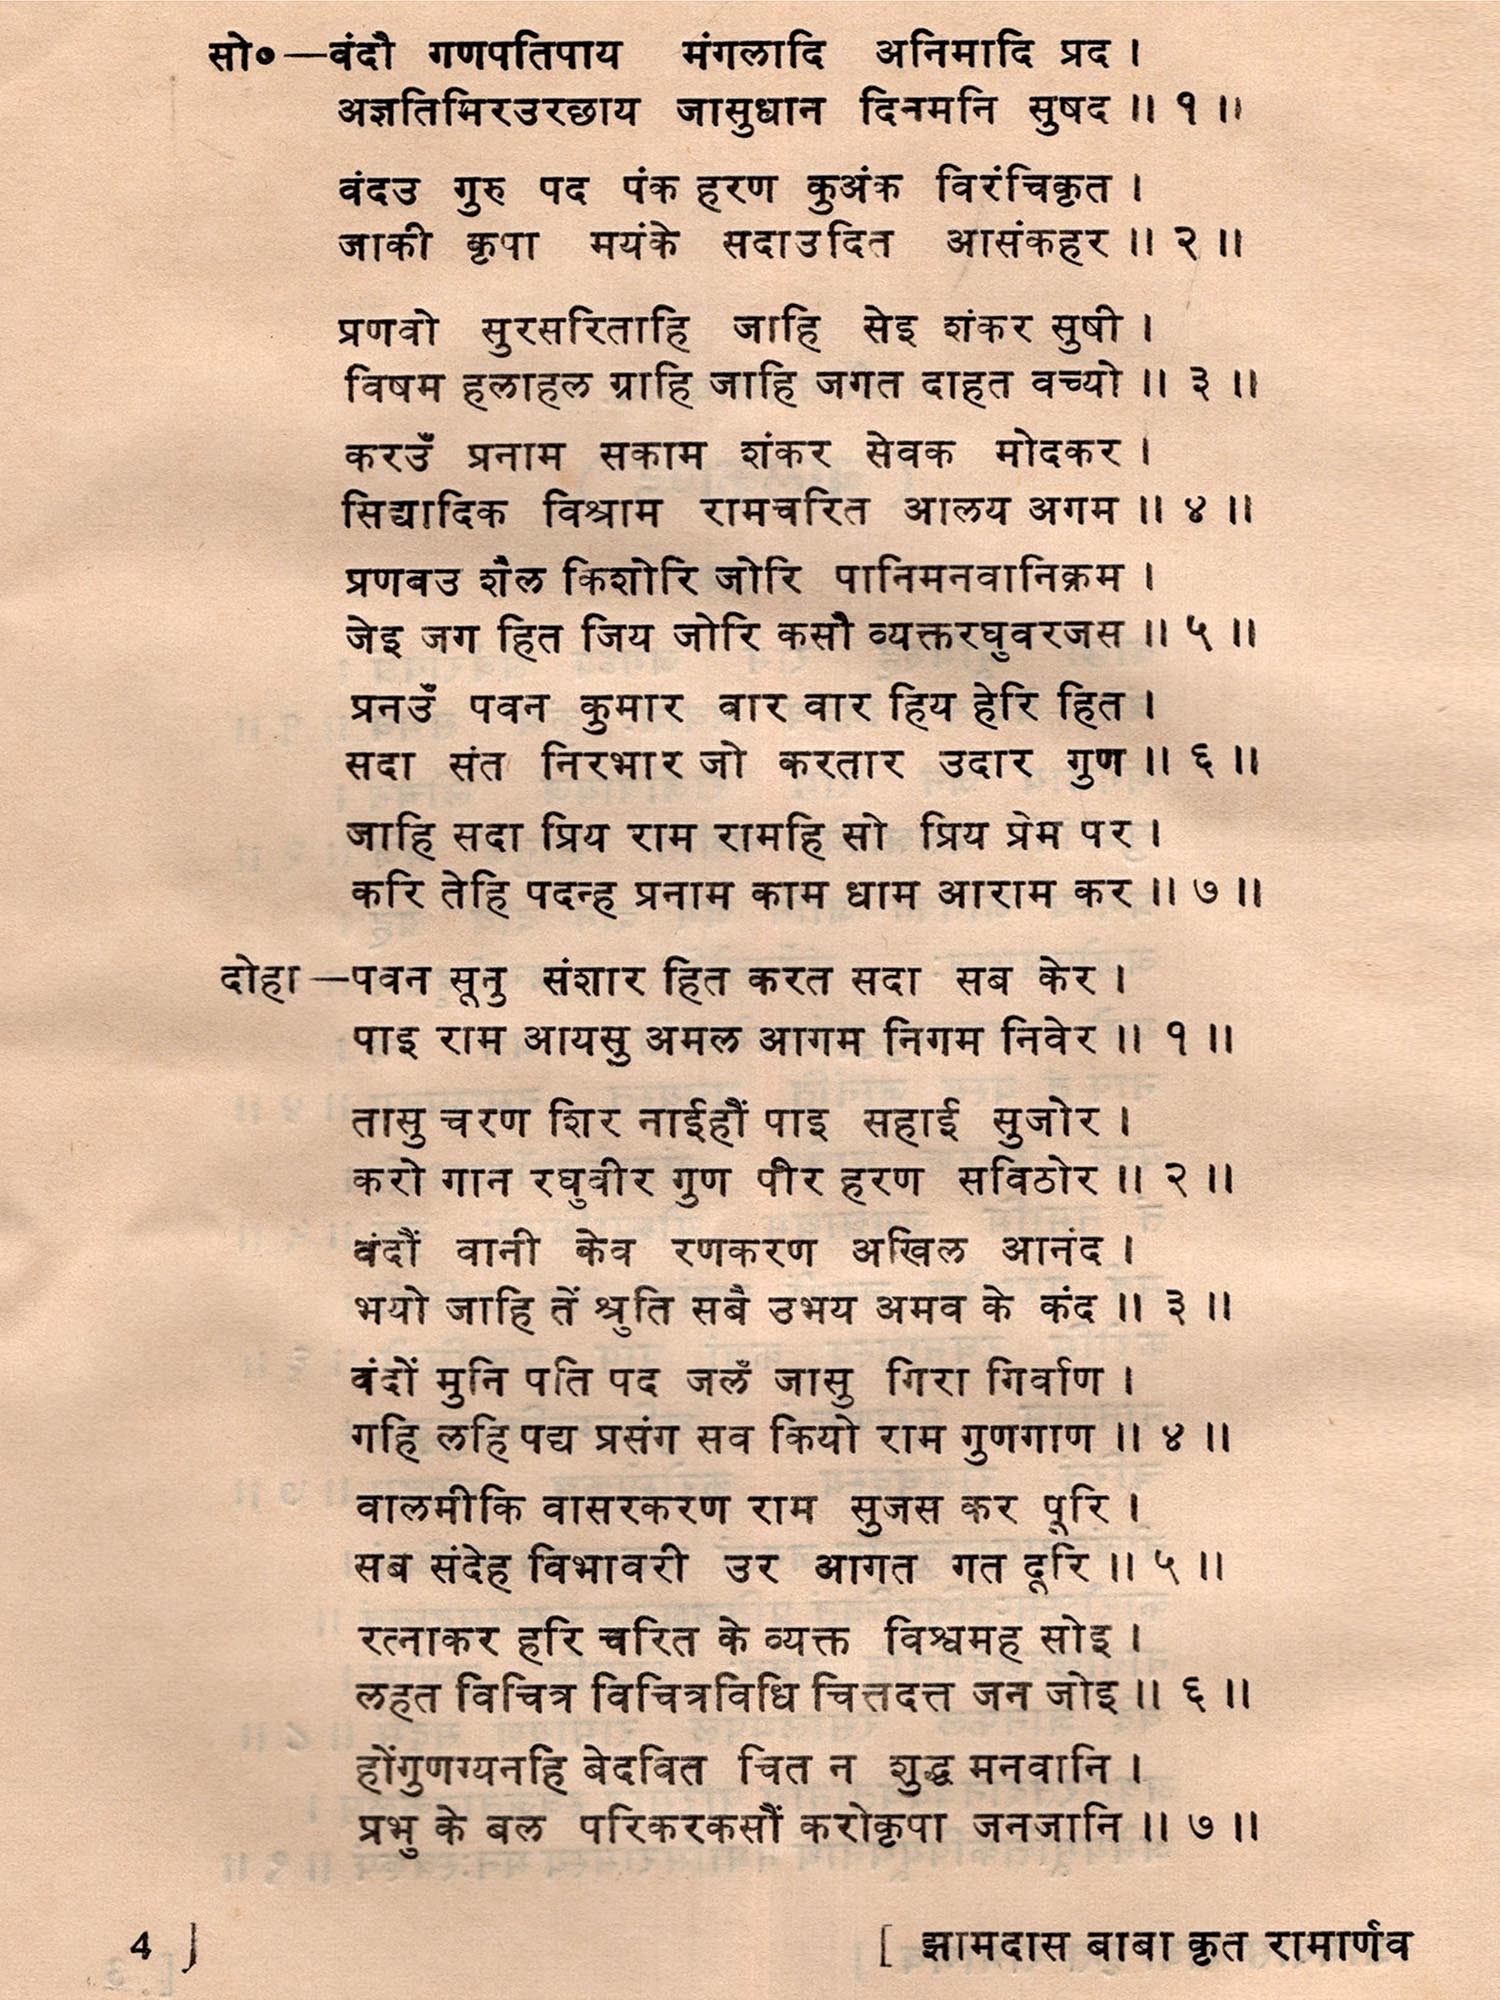 सो० —वंदौ गणपतिपाय मंगलादि अनिमादि प्रद ।
अज्ञतिमिरउरछाय जासुधान दिनमनि सुषद ॥ १ ॥
वंदउ गुरु पद पंक हरण कुअंक विरंचिकृत ।
जाकी कृपा मयंके सदाउदित आसंकहर ॥ २ ॥
प्रणवो सुरसरिताहि जाहि सेइ शंकर सुषी ।
विषम हलाहल ग्राहि जाहि जगत दाहत वच्यो ॥ ३ ॥
करउँ प्रनाम सकाम शंकर सेवक मोदकर ।
सिद्यादिक विश्राम रामचरित आलय अगम ॥ ४ ॥
प्रणबउ शैल किशोरि जोरि पानिमनवानिक्रम ।
जेइ जग हित जिय जोरि कसौ व्यक्तरघुवरजस ॥ ५ ॥
प्रनउँ पवन कुमार वार वार हिय हेरि हित ।
सदा संत निरभार जो करतार उदार गुण ॥ ६ ॥
जाहि सदा प्रिय राम रामहि सो प्रिय प्रेम पर ।
करि तेहि पदन्ह प्रनाम काम धाम आराम कर ॥ ७ ॥
दोहा —पवन सूनु संशार हित करत सदा सब केर ।
पाइ राम आयसु अमल आगम निगम निवेर ॥ १ ॥
तासु चरण शिर नाईहौं पाइ सहाई सुजोर ।
करो गान रघुवीर गुण पीर हरण सविठोर ॥ २ ॥
वंदौं वानी केव रणकरण अखिल आनंद ।
भयो जाहि तें श्रुति सबै उभय अमव के कंद ॥ ३ ॥
वंदों मुनि पति पद जलँ जासु गिरा गिर्वाण ।
गहि लहि पद्य प्रसंग सव कियो राम गुणगाण ॥ ४ ॥
वालमीकि वासरकरण राम सुजस कर पूरि ।
सब संदेह विभावरी उर आगत गत दूरि ॥ ५ ॥
रत्नाकर हरि चरित के व्यक्त विश्वमह सोइ ।
लहत विचित्र विचित्रविधि चित्तदत्त जन जोइ ॥ ६ ॥
होंगुणग्यनहि बेदवित चित न शुद्ध मनवानि ।
प्रभु के बल परिकरकसौं करोकृपा जनजानि ॥ ७ ॥
4 ] [ झामदास बाबा कृत रामार्णव